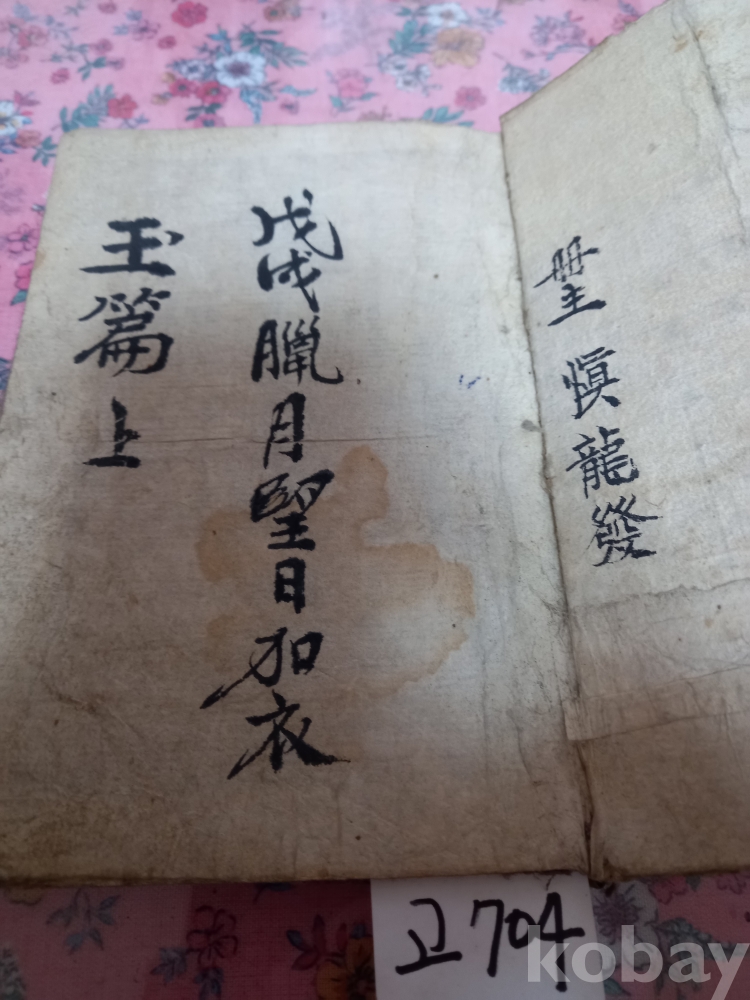 冊主 愼龍發
戊戌臘月望日加衣
玉篇 上
고704
kobay